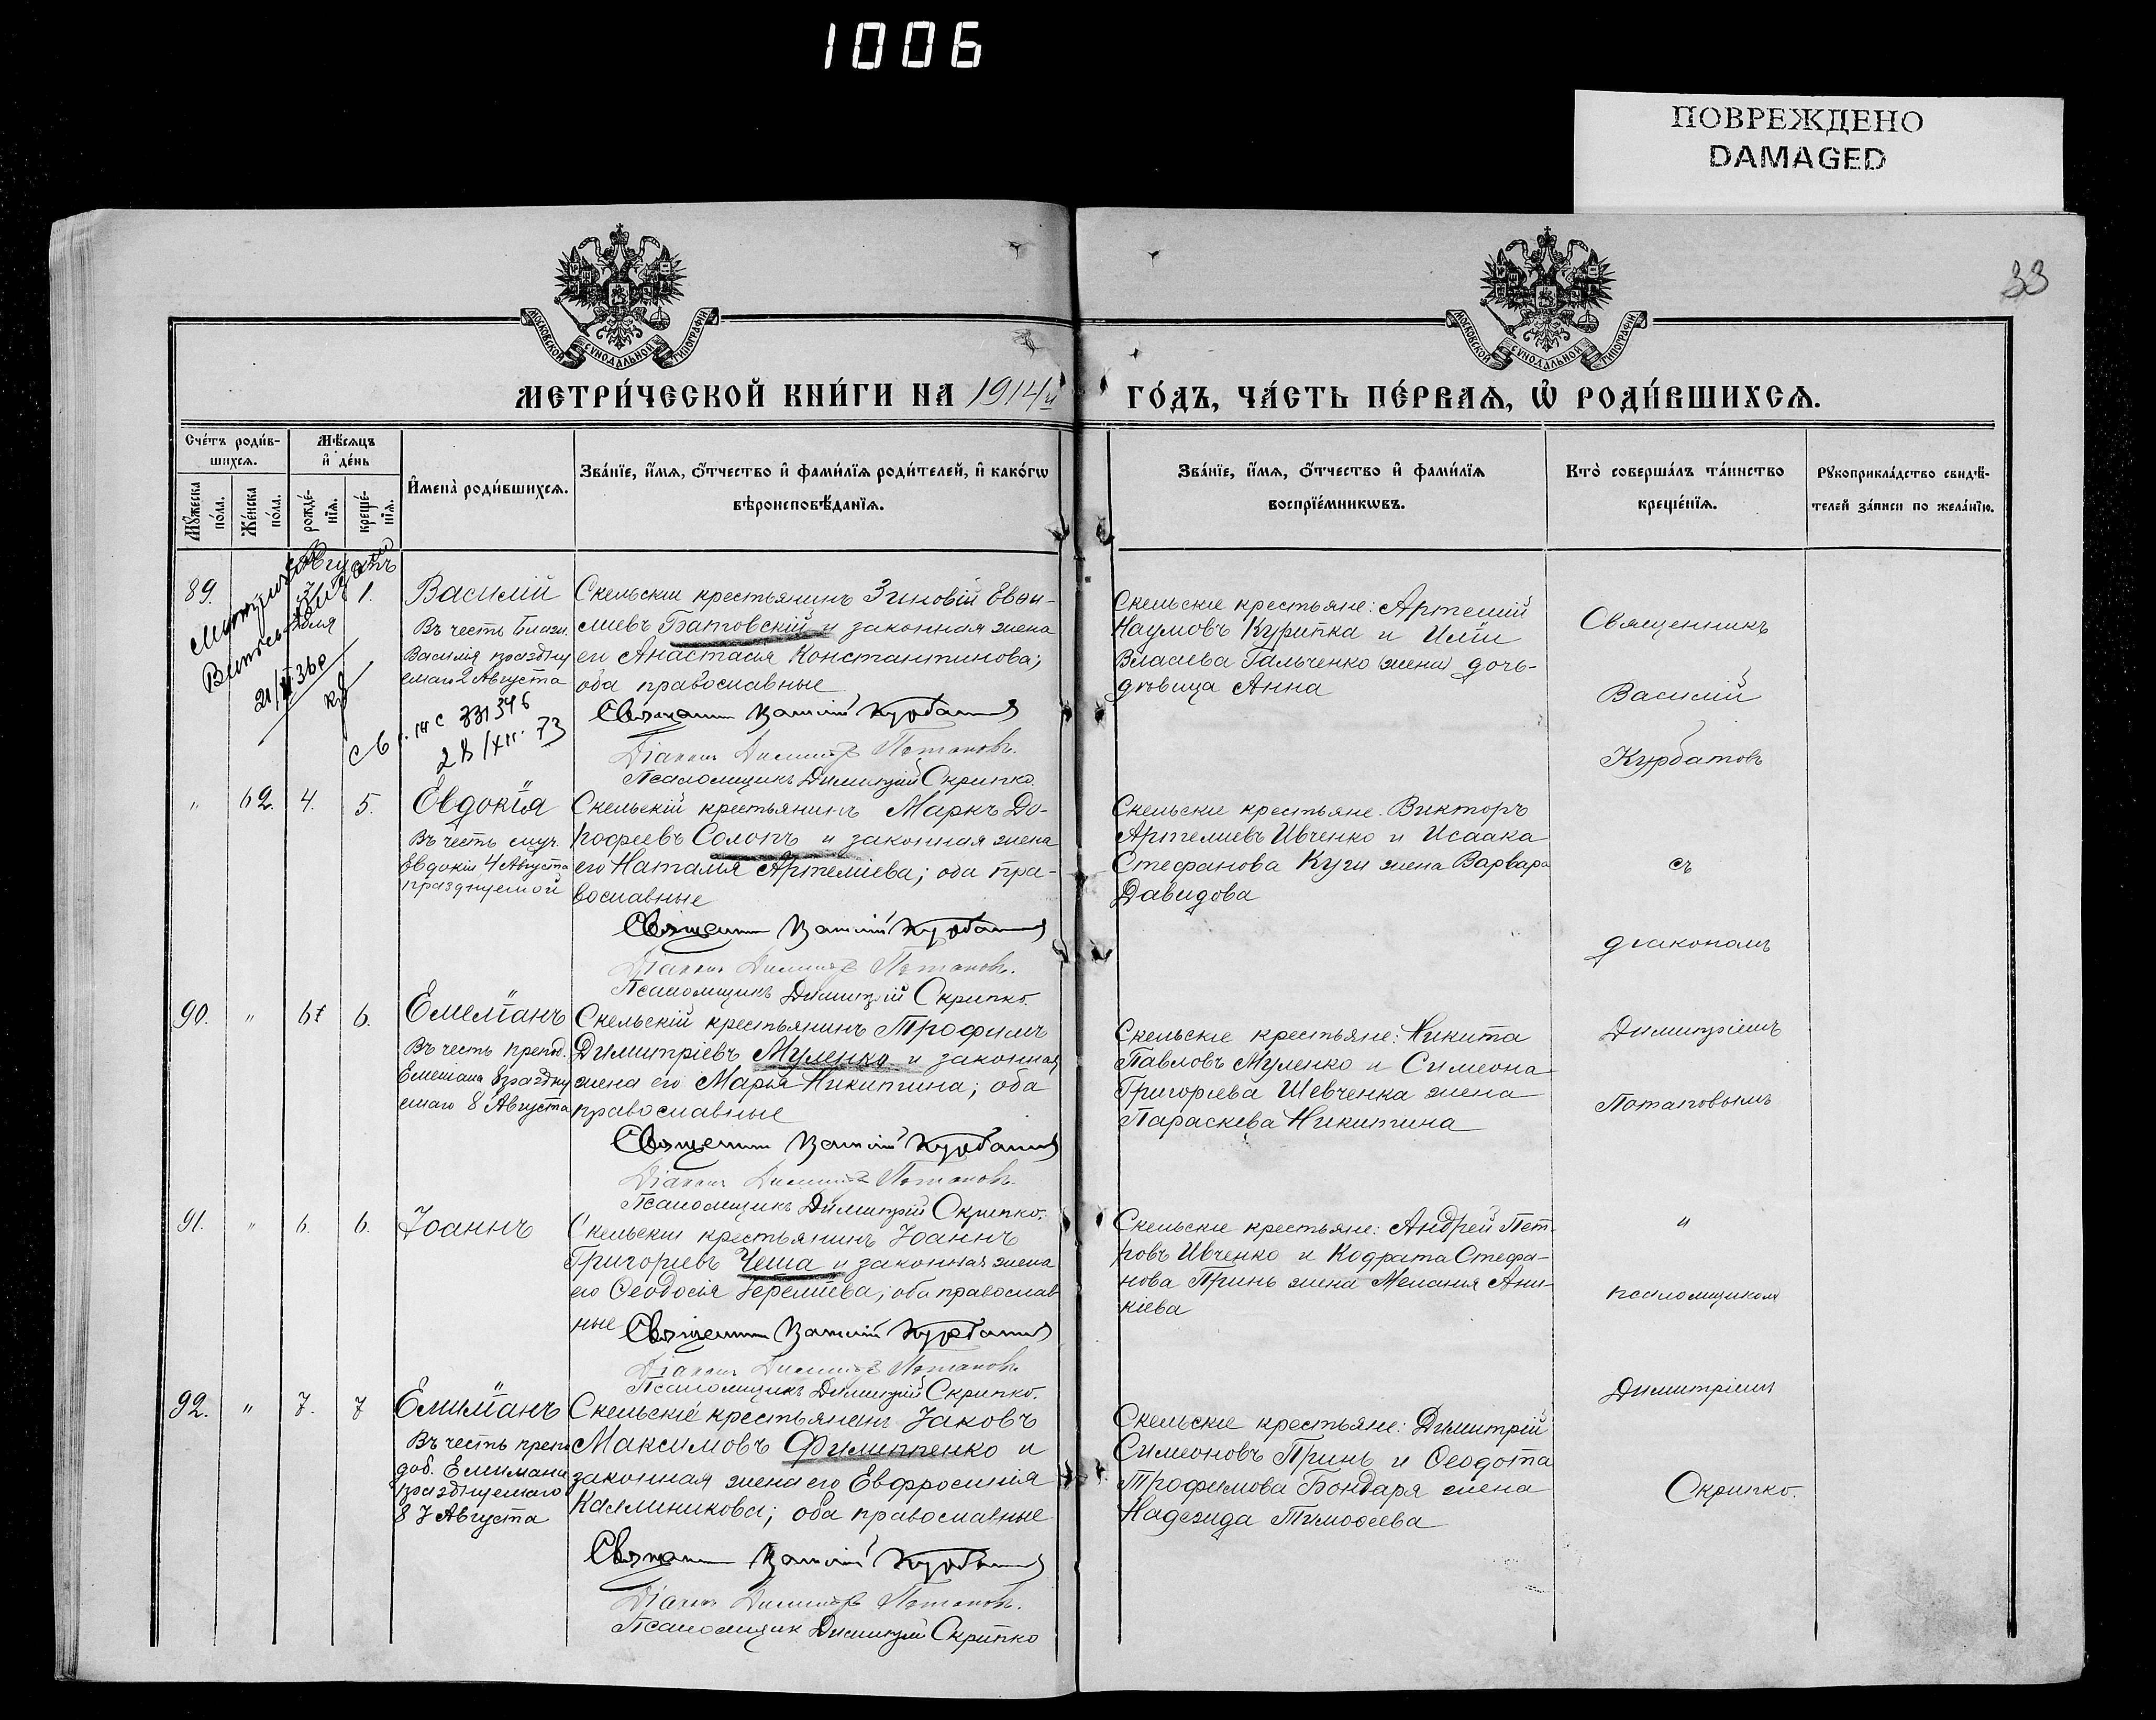 1006
ПОВРЕЖДЕНО
DAMAGED
33
МОСКОВСКОЙ СѴНОДАЛЬНОЙ ТИПОГРАФІИ
МОСКОВСКОЙ СѴНОДАЛЬНОЙ ТИПОГРАФІИ
МЕТРИ́ЧЕСКОЙ КНИ́ГИ НА 1914й ГО́ДЪ, ЧА́СТЬ ПЕ́РВАѦ, Ѡ҆ РОДИ́ВШИХСѦ.
Сче́тъ роди́в-
шихсѧ.
Мѣ́сѧцъ
и҆ де́нь
Мꙋ́жеска
по́ла.
Же́нска
по́ла.
рожде́-
нїѧ.
креще́-
нїѧ.
И҆мена̀ роди́вшихсѧ.
Зва́нїе, и҆́мѧ, ѻ҆́тчество и҆ фами́лїѧ роди́телей, и҆ како́гѡ
вѣроисповѣ́данїѧ.
Зва́нїе, и҆́мѧ, ѻ҆́тчество и҆ фами́лїѧ
воспрїе́мникѡвъ.
Кто̀ соверша́лъ та́инство
креще́нїѧ.
Рꙋкоприкла́дство свидѣ́-
телей за́писи по жела́нїю.
Августъ
89.
1.
Василій
Въ честь блаж.
Василія праздну
емаго 2 Августа
21/
28/XII. 73
Скельскій крестьянинъ Зиновій Евѳи-
міевъ Батовскій и законная жена
его Анастасія Константинова;
оба православные
Священник Василій Курбатов
Діаконъ Димитрій Потаповъ.
Псаломщикъ Димитрій Скрипко.
Скельскіе крестьяне: Артемій
Наумовъ Курипка и Иліи
Власіева Гальченко дочь-
дѣвица Анна
Священникъ
Василій
Курбатовъ
съ
діакономъ
Димитріемъ
Потаповымъ
и
псаломщикомъ
Димитріемъ
Скрипко.
" 62. 4. 5.
Евдокія
Въ честь муч.
Евдокіи 4 Августа
празднуемой
Скельскій крестьянинъ Маркъ До-
рофеевъ Солопъ и законная жена
его Наталія Артеміева; оба пра-
вославные
Священник Василій Курбатов
Діаконъ Димитрій Потаповъ.
Псаломщикъ Димитрій Скрипко.
Скельскіе крестьяне. Викторъ
Артеміевъ Ивченко и Исаака
Стефанова Куги жена Варвара
Давидова
90. " 6.
Емеліанъ
Въ честь препод.
Емеліана празднуемаго 8 Августа
Скельскій крестьянинъ Трофимъ
Димитріевъ Муленко и законная
жена его Марія Никитина; оба
православные
Священник Василій Курбатов
Діаконъ Димитрій Потаповъ.
Псаломщикъ Димитрій Скрипко.
Скельскіе крестьяне: Никита
Павловъ Муленко и Симеона
Григорьева Шевченка жена
Параскева Никитина
91. " 6. 6.
Іоаннъ
Скельскій крестьянинъ Іоаннъ
Григоріевъ Чеша и законная жена
его Ѳеодосія Іереміева; оба православ
ные
Священник Василій Курбатов
Діаконъ Димитрій Потаповъ.
Псаломщикъ Димитрій Скрипко.
Скельскіе крестьяне: Андрей Пет-
ровъ Ивченко и Кодрата Стефа-
нова Принь жена Меланія Ани-
кіева
92. " 7. 7
Емиліанъ
Въ честь препо
доб. Емиліана
празднуемаго
8 Августа
Скельскіе крестьянинъ Іаковъ
Максимовъ Филиппенко и
законная жена его Евфросинія
Каллиникова; оба православные
Священник Василій Курбатов
Діаконъ Димитрій Потаповъ.
Псаломщик Димитрій Скрипко
Скельскіе крестьяне: Димитрій
Симеоновъ Принь и Ѳеодота
Трофимова Бондаря жена
Надежда Тимоѳеева